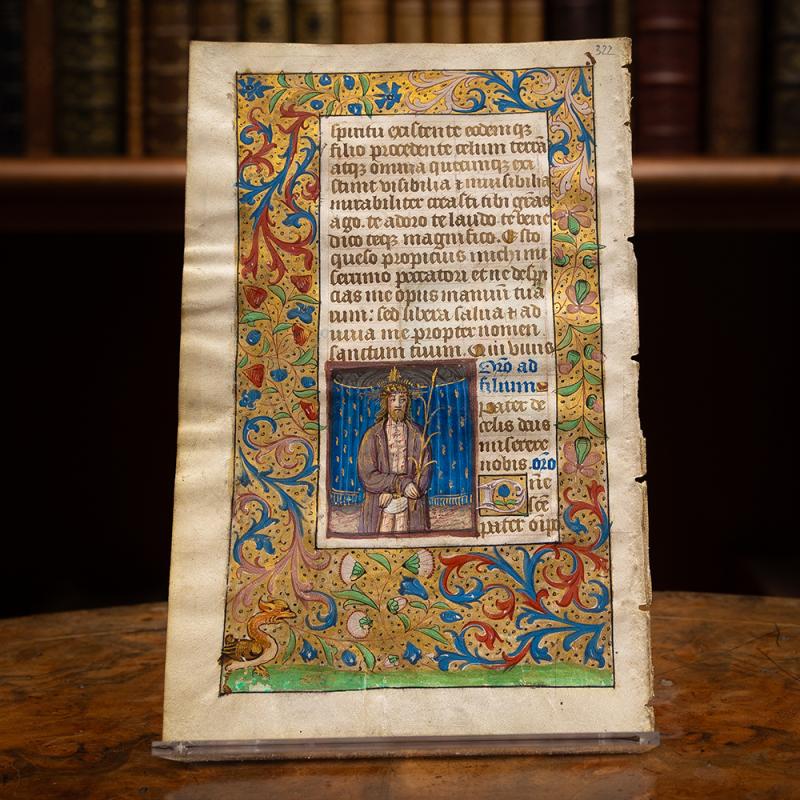 322
spiritu existente eodemqꝫ
filio procedente celum terrā
atqꝫ omnia quecunqꝫ exi
stunt visibilia ⁊ inuisibilia
mirabiliter creasti tibi grās
ago. te adoro te laudo te bene
dico teqꝫ magnifico. Esto
queso propicius michi mi
serrimo peccatori et ne despi
cias me opus manuū tua
rum: sed libera salua ⁊ ad
iuua me propter nomen
sanctum tuum. Qui viuis
Orō ad
filium
pater de
celis deus
miserere
nobis. orō
ne
sce
pater oīpo